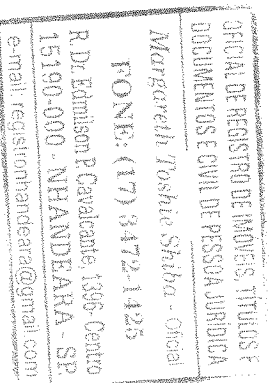 OFICIAL DE REGISTRO DE IMÓVEIS, TÍTULOS E
DOCUMENTOS E CIVIL DE PESSOA JURÍDICA
Margareth Toshie Shiba - Oficial
FONE: (17) 3472-1425
R. Dr. Edmilson P. Cavalcante, 1396 Centro
15190-000 - NHANDEARA - SP
e-mail: registronhandeara@gmail.com